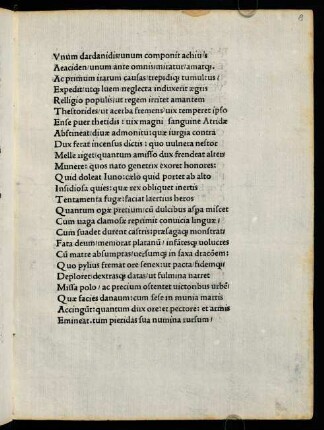 Vnum dardanidis: unum componit achiuis
Aeaciden/unum ante omnis miratur/amatq;
Ac primum irarum causas/trepidiq; tumultus/
Expedit/utq; luem neglecta induxerit ægris
Relligio populis/ut regem irritet amantem
Thestorides/ut acerba fremens/uix temperet ipso
Ense puer thetidis: uix magni sanguine Atridæ
Abstineat: diuæ admonitu: quæ iurgia contra
Dux ferat incensus dictis: quo uulnera nestor
Melle riget: quantum amisso dux frendeat alter
Munere: quos nato genetrix exoret honores:
Quid doleat Iuno: cælo quid portet ab alto
Insidiosa quies: quæ rex obliquet inertis
Tentamenta fugæ: faciat laertius heros
Quantum opæ pretium: cũ dulcibus aspa miscet
Cum uaga clamosæ reprimit conuicia linguæ/
Cum suadet durent castris: præsagaq; monstrat
Fata deum: memorat platanũ/ infãtesq; uolucres
Cũ matre absumptas: uersumq; in saxa dracõem:
Quo pylius fremat ore senex: ut pacta fidemq;
Deploret: dextrasq; datas/ut fulmina narret
Missa polo/ ac precium ostentet uictoribus urbẽ
Quæ facies danaum: cum sese in munia martis
Accingũt: quantum dux ore: et pectore: et armis
Emineat. tum pieridas sua numina rursum/